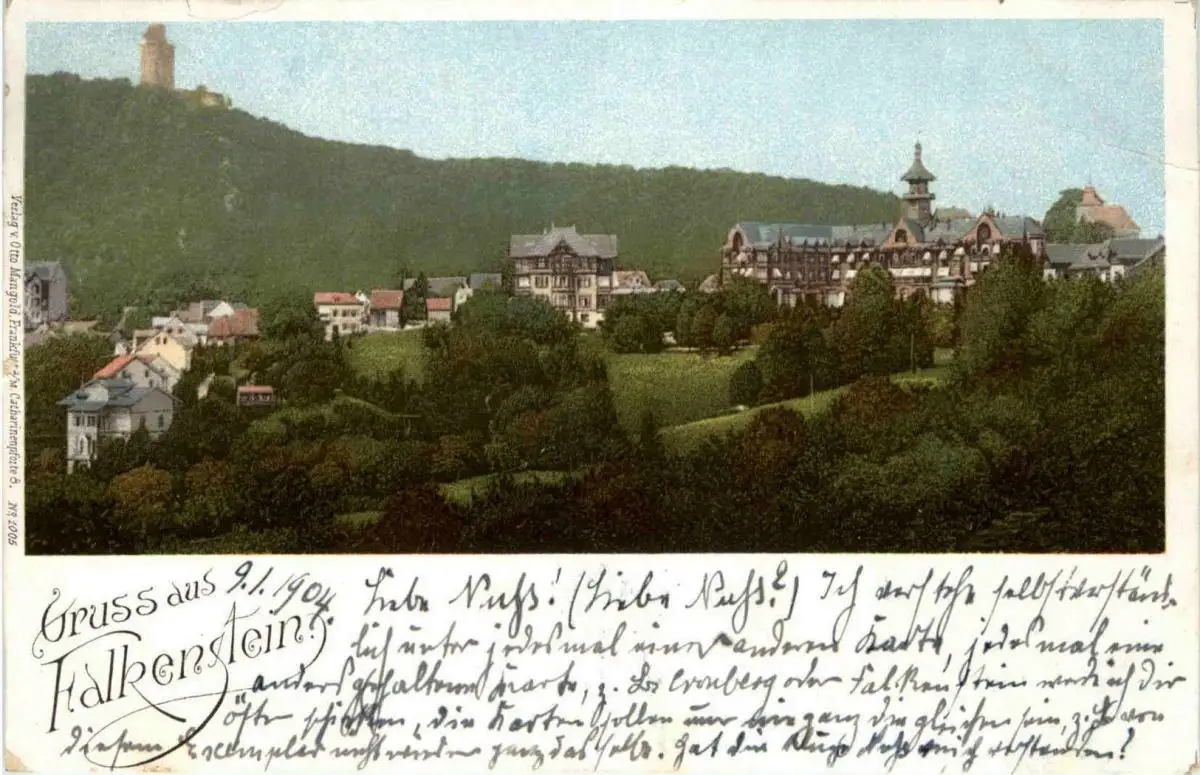 Verlag v. Otto Mangold, Frankfurt a/M. Catharinenpforte 6. No 2005
Gruss aus
Falkenstein.
9.1.1904.
Liebe Nuss! (Liebe Nuss?) Ich verstehe selbstverständ-
lich unter jedesmal einer anderen Karte, jedesmal eine
anders gehaltene Karte, z. B. Cronberg oder Falkenstein werde ich Dir
öfter schicken, die Karten sollen nur nie ganz die gleichen sein, z. B. von
diesem Exemplar nicht wieder ganz dasselbe. Hat die Nuss mich verstanden?